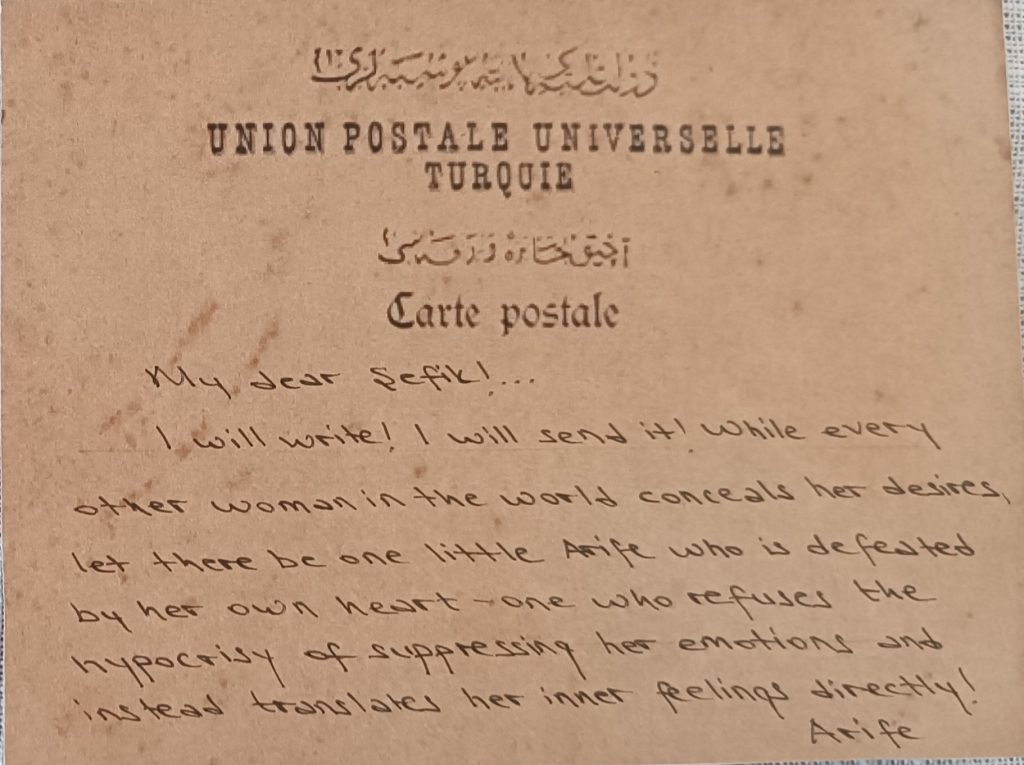 UNION POSTALE UNIVERSELLE
TURQUIE
آچیق مخابره ورقه سی
Carte postale
My dear Şefik!...
I will write! I will send it! While every
other woman in the world conceals her desires,
let there be one little Arife who is defeated
by her own heart - one who refuses the
hypocrisy of suppressing her emotions and
instead translates her inner feelings directly!
Arife